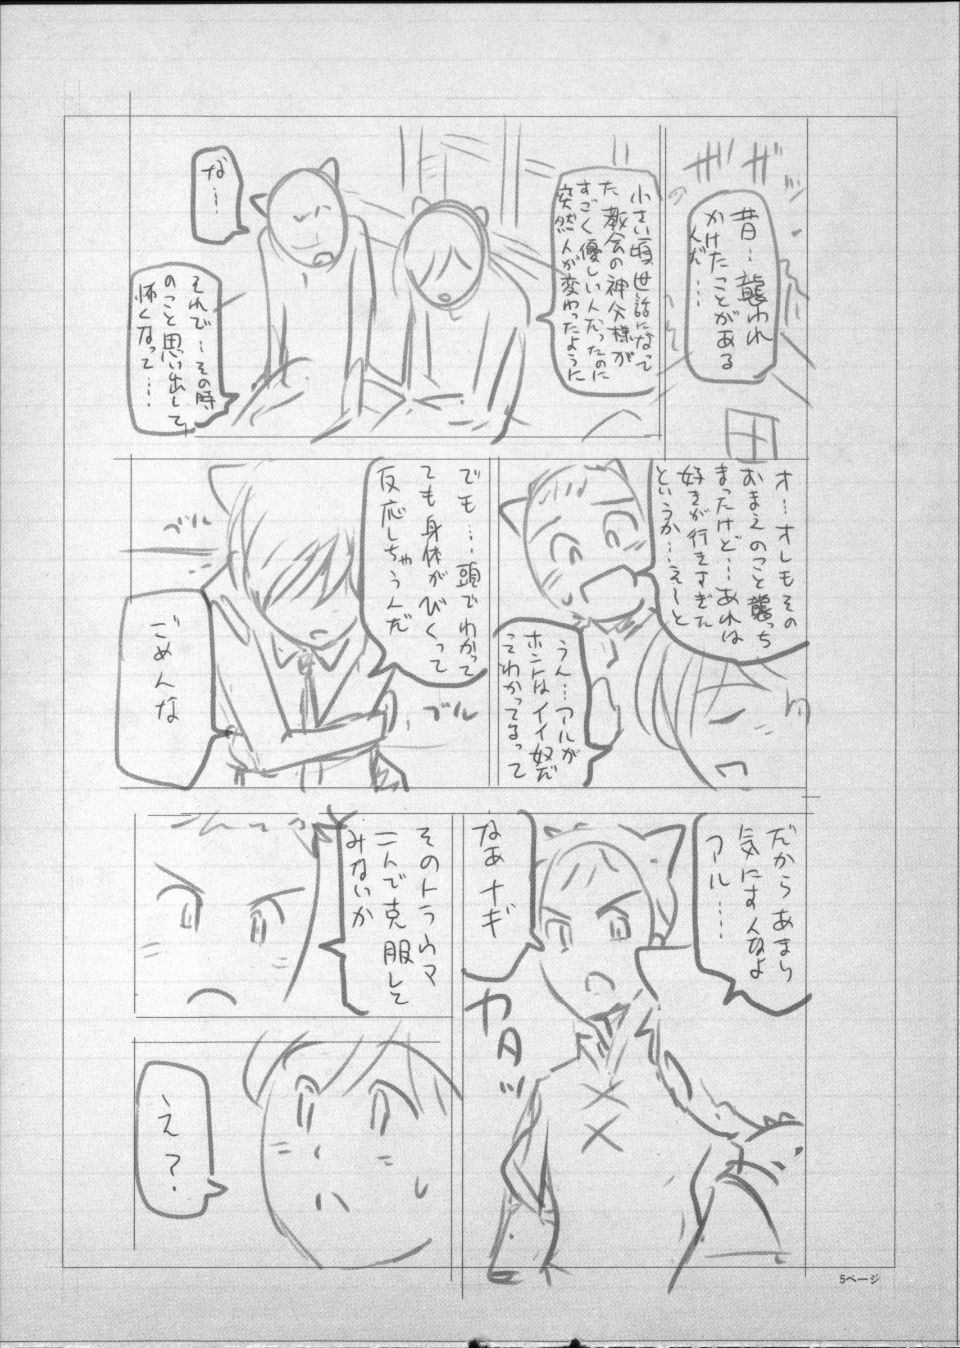 ザザ
昔…襲われ
かけたことがある
んだ……
小さい頃世話になって
た教会の神父様が
すごく優しい人だったのに
突然人が変わったように
な…
それで…その時
のこと思い出して
怖くなって……
オ…オレもその
おまえのこと襲っち
まったけど…あれは
好きが行きすぎた
というか…えーと
うん…アルが
ホントはイイ奴だ
ってわかってるって
でも…頭でわかって
ても身体がびくって
反応しちゃうんだ
ブル
ブル
ごめんな
だからあまり
気にすんなよ
アル……
なあナギ
カタッ
そのトラウマ
二人で克服して
みないか
え？
5ページ